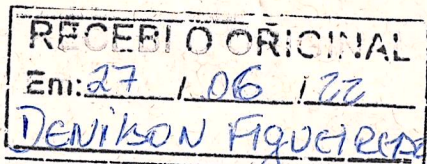 RECEBI O ORIGINAL
Em: 27 / 06 / 22
DENILSON FIGUEIREDO